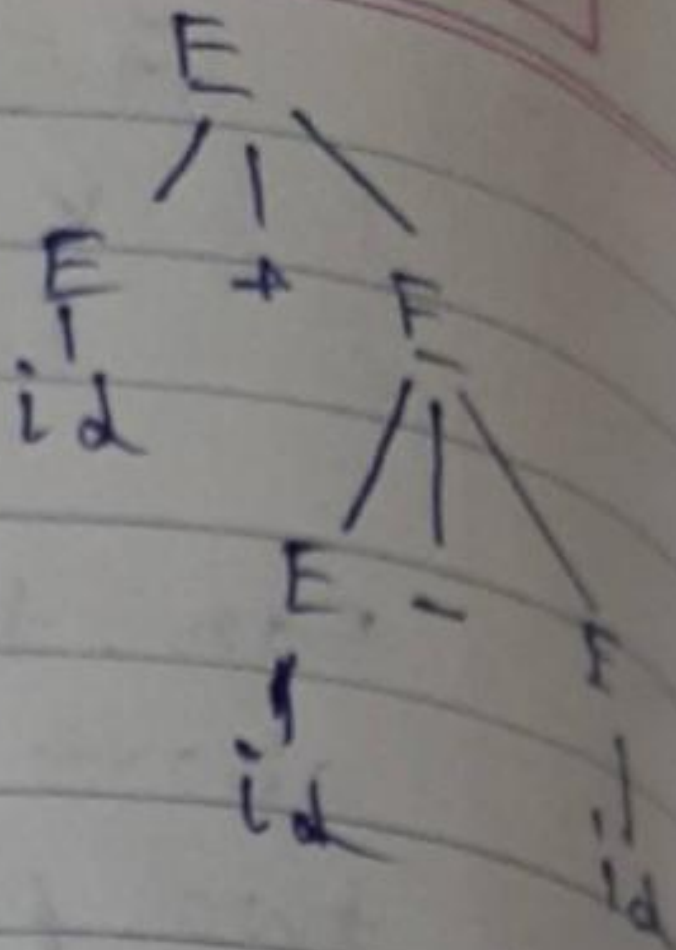 E
E + E
id
E -  E
id
id